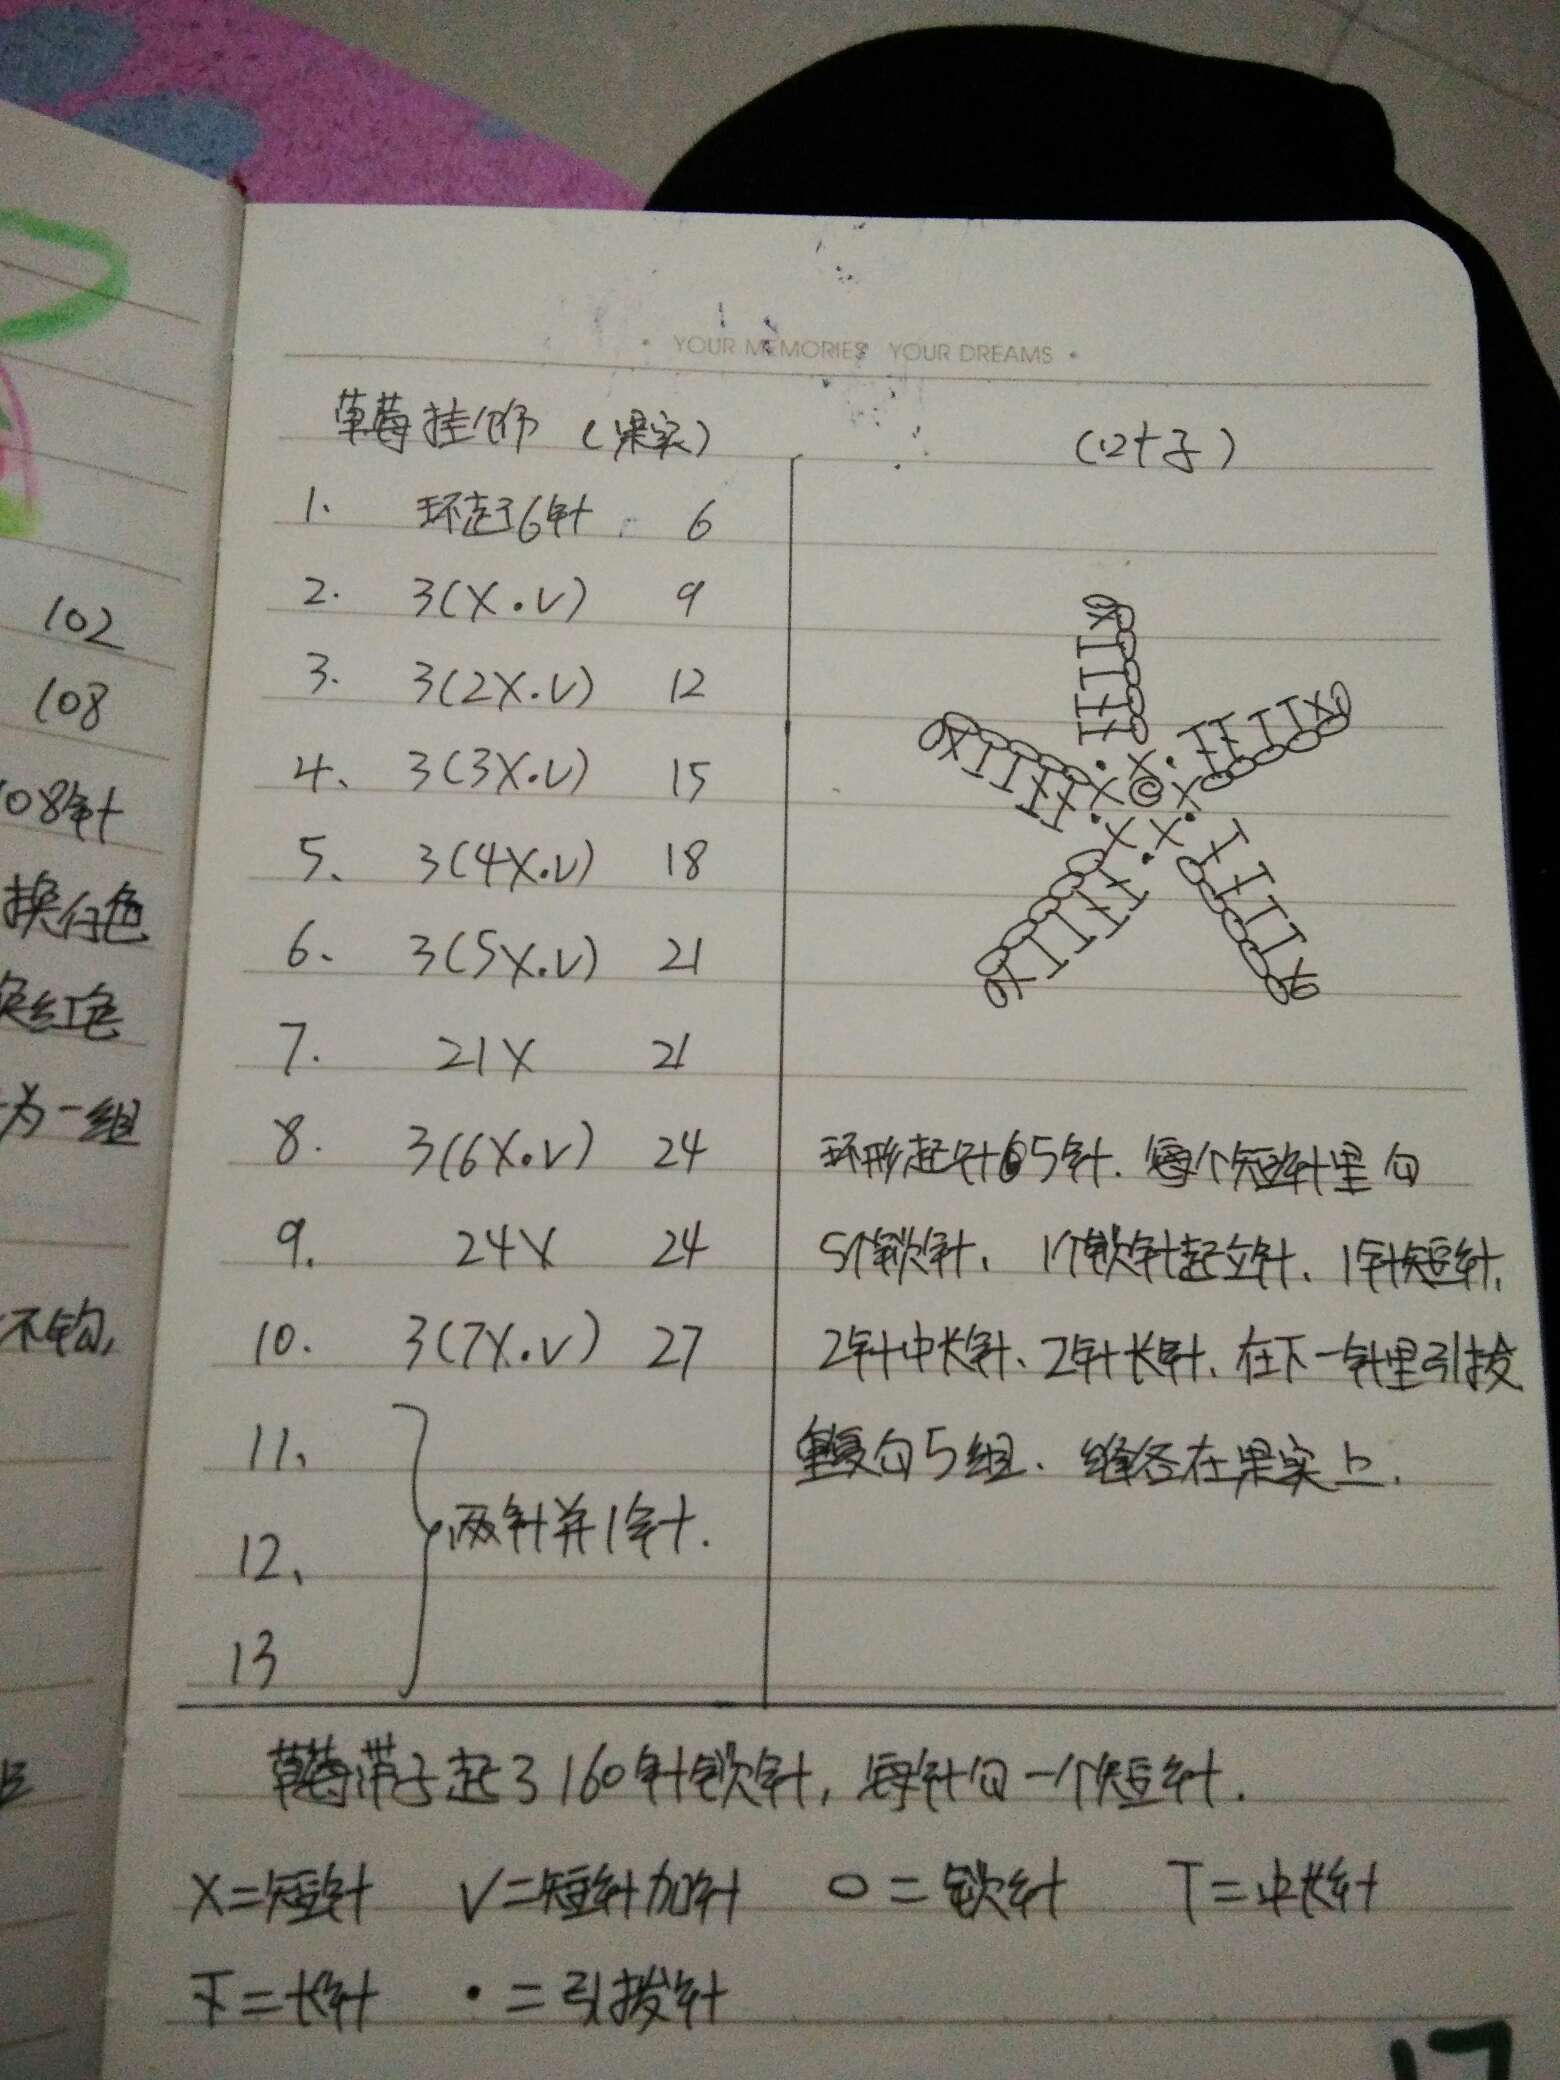 YOUR MEMORIES YOUR DREAMS
草莓挂饰 (果实)
1. 环起6针 6
2. 3(X·V) 9
3. 3(2X.V) 12
4、 3(3X.V) 15
5、 3(4X.V) 18
6、 3(5X.V) 21
7. 21X 21
8. 3(6X.V) 24
9. 24X 24
10. 3(7X.V) 27
11、
12、
13
两针并1针.
(叶子)
环形起针5针. 每个短针里勾
5个锁针、1个锁针起立针、1针短针,
2针中长针、2针长针、在下一针里引拔
重复勾5组. 缝合在果实上.
草莓带子起160针锁针, 每针勾一个短针.
X=短针 V=短针加针 O=锁针 T=中长针
下=长针 ·=引拨针
17
102
108
08针
换白色
换红色
为一组
不钩,